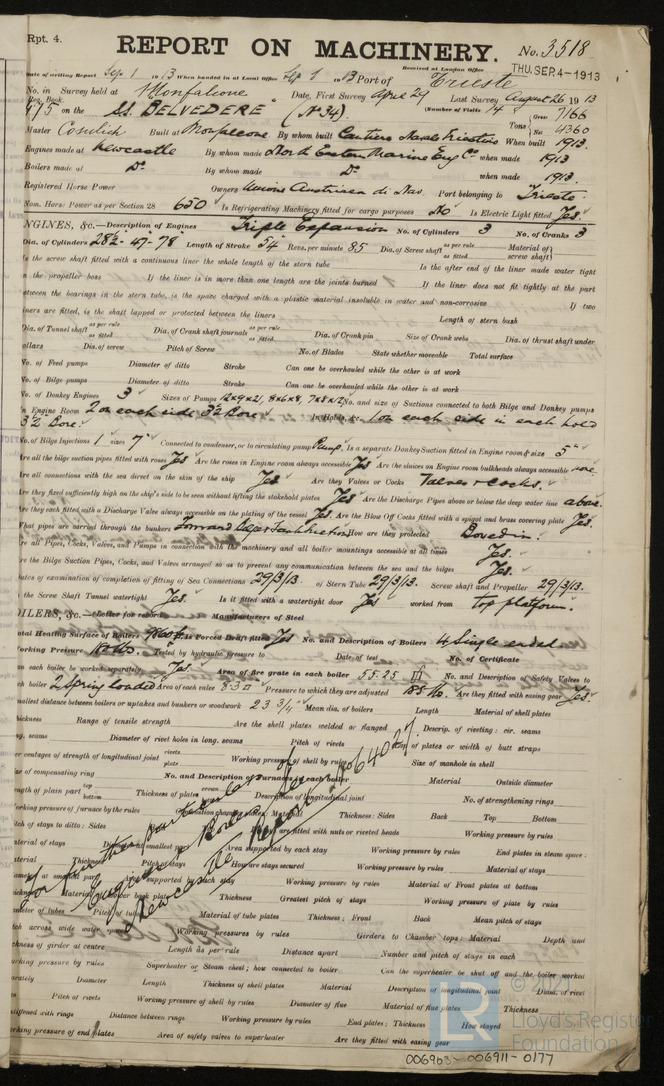 Rpt. 4.
REPORT ON MACHINERY.
No. 3518
Date of writing Report Sep 1 1913 When handed in at Local Office Sep 1 1913 Port of Trieste
Received at London Office THU. SEP. 4 - 1913
No. in Survey held at Monfalcone Date, First Survey April 29 Last Survey August 26 1913
Reg. Book. (Number of Visits 14
475 on the S.S. BELVEDERE (No 34) Tons Gross 7166 Net 4360
Master Cosulich Built at Monfalcone By whom built Cantiere Navale Triestino When built 1913
Engines made at Newcastle By whom made North Eastern Marine Eng Co when made 1913
Boilers made at Do By whom made Do when made 1913
Registered Horse Power Owners Unione Austriaca di Nav. Port belonging to Trieste
Nom. Horse Power as per Section 28 650 Is Refrigerating Machinery fitted for cargo purposes No Is Electric Light fitted Yes
NGINES, &c.—Description of Engines Triple Expansion No. of Cylinders 3 No. of Cranks 3
Dia. of Cylinders 28½ - 47 - 78 Length of Stroke 54 Revs. per minute 85 Dia. of Screw shaft as per rule as fitted Material of screw shaft
Is the screw shaft fitted with a continuous liner the whole length of the stern tube Is the after end of the liner made water tight
n the propeller boss If the liner is in more than one length are the joints burned If the liner does not fit tightly at the part
etween the bearings in the stern tube, is the space charged with a plastic material insoluble in water and non-corrosive If two
iners are fitted, is the shaft lapped or protected between the liners Length of stern bush
Dia. of Tunnel shaft as per rule as fitted Dia. of Crank shaft journals as per rule as fitted Dia. of Crank pin Size of Crank webs Dia. of thrust shaft under
ollars Dia. of screw Pitch of Screw No. of Blades State whether moveable Total surface
No. of Feed pumps Diameter of ditto Stroke Can one be overhauled while the other is at work
No. of Bilge pumps Diameter of ditto Stroke Can one be overhauled while the other is at work
No. of Donkey Engines 3 Sizes of Pumps 12x9x21, 8x6x8, 7x8x12 No. and size of Suctions connected to both Bilge and Donkey pumps
n Engine Room 2 on each side 3½ Bore. In Holds, &c. 1 on each side in each hold
3½ Bore.
No. of Bilge Injections 1 sizes 7" Connected to condenser, or to circulating pump Pump. Is a separate Donkey Suction fitted in Engine room & size 5"
re all the bilge suction pipes fitted with roses Yes Are the roses in Engine room always accessible Yes Are the sluices on Engine room bulkheads always accessible none
re all connections with the sea direct on the skin of the ship Yes Are they Valves or Cocks Valves & Cocks.
re they fixed sufficiently high on the ship's side to be seen without lifting the stokehold plates Yes Are the Discharge Pipes above or below the deep water line above
re they each fitted with a Discharge Valve always accessible on the plating of the vessel Yes. Are the Blow Off Cocks fitted with a spigot and brass covering plate Yes.
hat pipes are carried through the bunkers How are they protected Boxed in.
re all Pipes, Cocks, Valves, and Pumps in connection with the machinery and all boiler mountings accessible at all times Yes.
re the Bilge Suction Pipes, Cocks, and Valves arranged so as to prevent any communication between the sea and the bilges Yes.
ates of examination of completion of fitting of Sea Connections 29/3/13. of Stern Tube 29/3/13. Screw shaft and Propeller 29/3/13.
the Screw Shaft Tunnel watertight Yes. Is it fitted with a watertight door Yes worked from top platform.
OILERS, &c.—(Letter for record Manufacturers of Steel
otal Heating Surface of Boilers Is Forced Draft fitted Yes No. and Description of Boilers 4 Single ended
orking Pressure Tested by hydraulic pressure to Date of test No. of Certificate
an each boiler be worked separately Yes. Area of fire grate in each boiler 55.25 No. and Description of Safety Valves to
ch boiler 2 Spring loaded Area of each valve 8.30" Pressure to which they are adjusted Are they fitted with easing gear Yes.
mallest distance between boilers or uptakes and bunkers or woodwork 23 3/4" Mean dia. of boilers Length Material of shell plates
hickness Range of tensile strength Are the shell plates welded or flanged Descrip. of riveting: cir. seams
ng. seams Diameter of rivet holes in long. seams Pitch of rivets Lap of plates or width of butt straps
er centages of strength of longitudinal joint rivets plate Working pressure of shell by rules Size of manhole in shell
ize of compensating ring No. and Description of Furnaces in each boiler Material Outside diameter
ngth of plain part top bottom Thickness of plates crown Description of longitudinal joint No. of strengthening rings
orking pressure of furnace by the rules Combustion chamber plates: Material Thickness: Sides Back Top Bottom
itch of stays to ditto: Sides fitted with nuts or riveted heads Working pressure by rules
aterial of stays Diameter at smallest part Area supported by each stay Working pressure by rules End plates in steam space:
aterial Thickness Pitch of stays How are stays secured Working pressure by rules Material of stays
iameter at smallest part supported by each stay Working pressure by rules Material of Front plates at bottom
ickness Material of Lower back plate Thickness Greatest pitch of stays Working pressure of plate by rules
iameter of tubes Pitch of tubes Material of tube plates Thickness: Front Back Mean pitch of stays
itch across wide water spaces Working pressures by rules Girders to Chamber tops: Material Depth and
hickness of girder at centre Length as per rule Distance apart Number and pitch of stays in each
orking pressure by rules Superheater or Steam chest; how connected to boiler Can the superheater be shut off and the boiler worked
arately Diameter Length Thickness of shell plates Material Description of longitudinal joint Diam. of rivet
Pitch of rivets Working pressure of shell by rules Diameter of flue Material of flue plates Thickness
stiffened with rings Distance between rings Working pressure by rules End plates: Thickness How stayed
orking pressure of end plates Area of safety valves to superheater Are they fitted with easing gear
for further particulars of
Engines & Boilers see
Newcastle Report No 64027.
LR
© 2021
Lloyd's Register
Foundation
006903-006911-0177